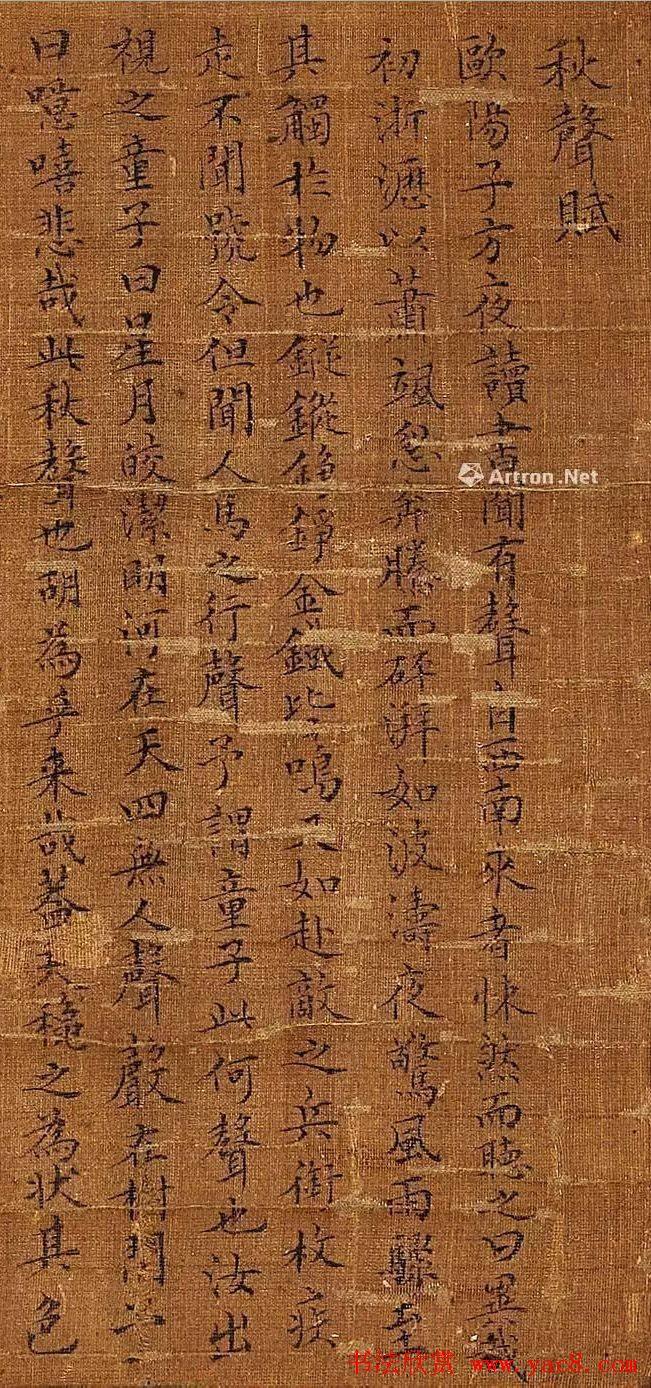 秋聲賦
歐陽子方夜讀書聞有聲自西南來者悚然而聽之曰異哉
初淅瀝以蕭颯忽奔騰而砰湃如波濤夜驚風雨驟至
其觸於物也鏦鏦錚錚金鐵皆鳴又如赴敵之兵銜枚疾
走不聞號令但聞人馬之行聲予謂童子此何聲也汝出
視之童子曰星月皎潔明河在天四無人聲聲在樹間予
曰噫嘻悲哉此秋聲也胡為乎來哉蓋夫穐之為狀其色
Artron.Net
书法欣赏 www.yac8.com